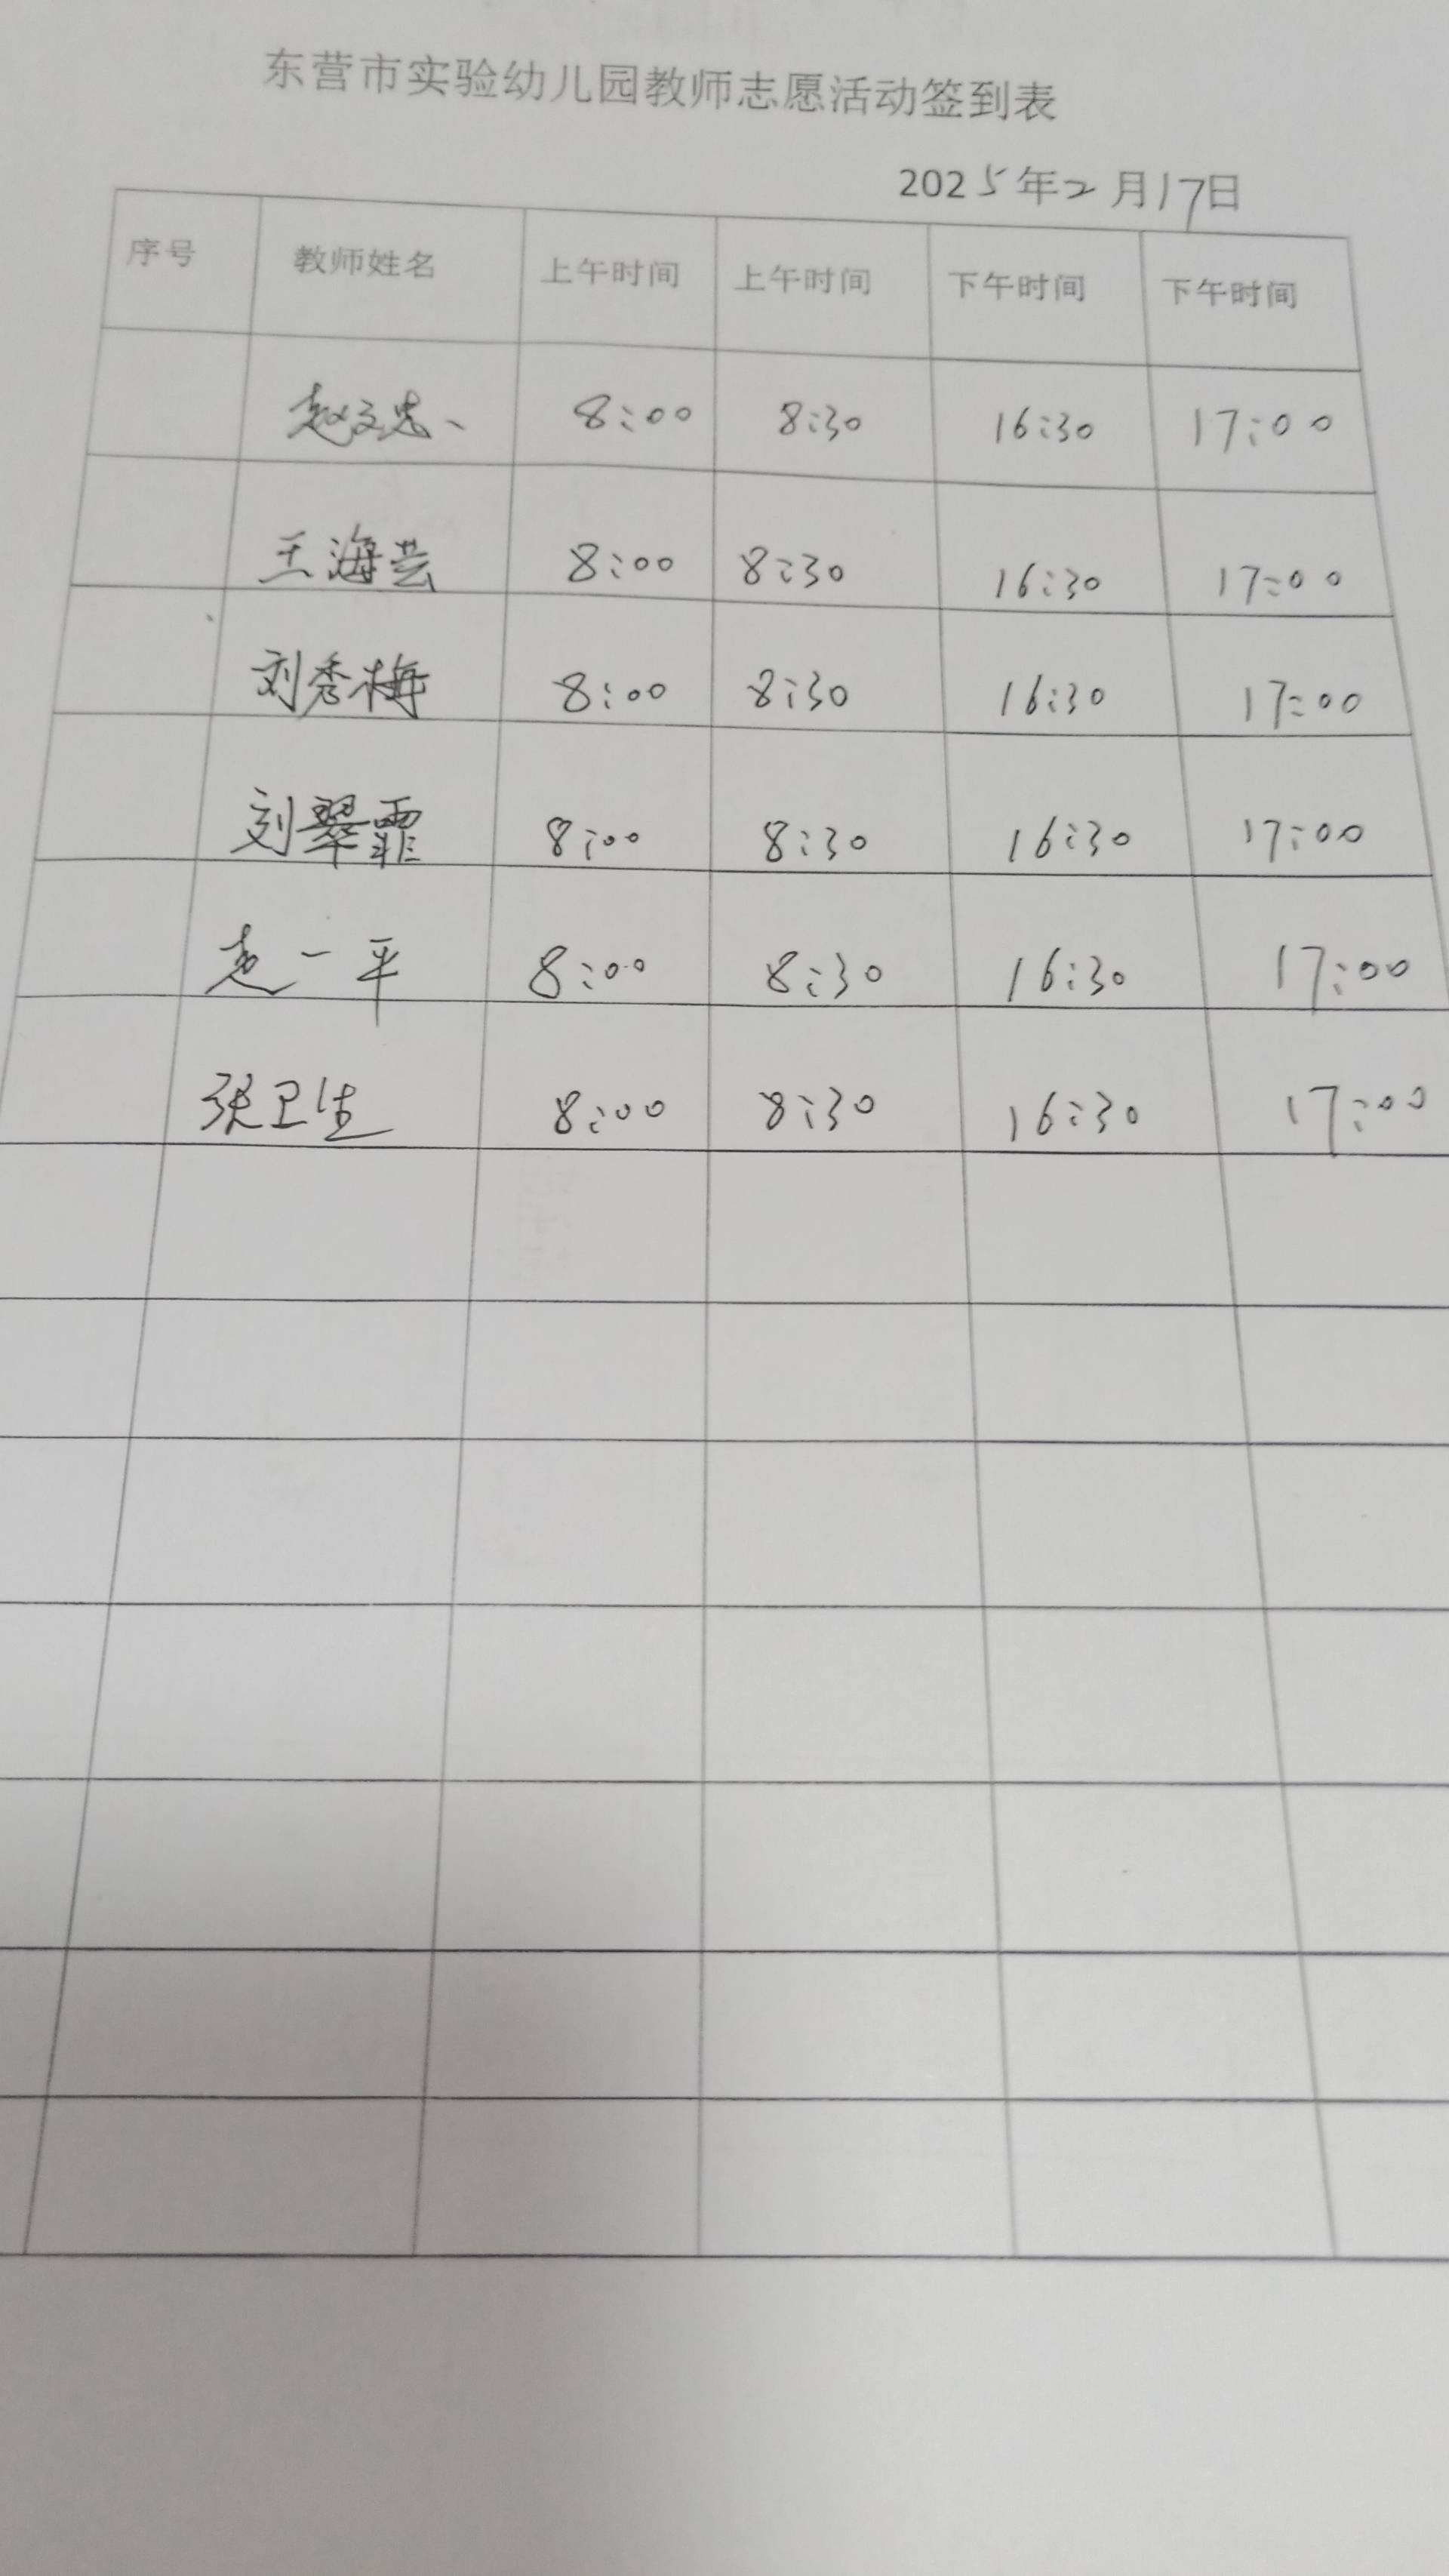 东营市实验幼儿园教师志愿活动签到表
2025年2月17日
序号 教师姓名 上午时间 上午时间 下午时间 下午时间
赵文忠 8:00 8:30 16:30 17:00
王海芸 8:00 8:30 16:30 17:00
刘秀梅 8:00 8:30 16:30 17:00
刘翠霏 8:00 8:30 16:30 17:00
赵一平 8:00 8:30 16:30 17:00
张卫生 8:00 8:30 16:30 17:00